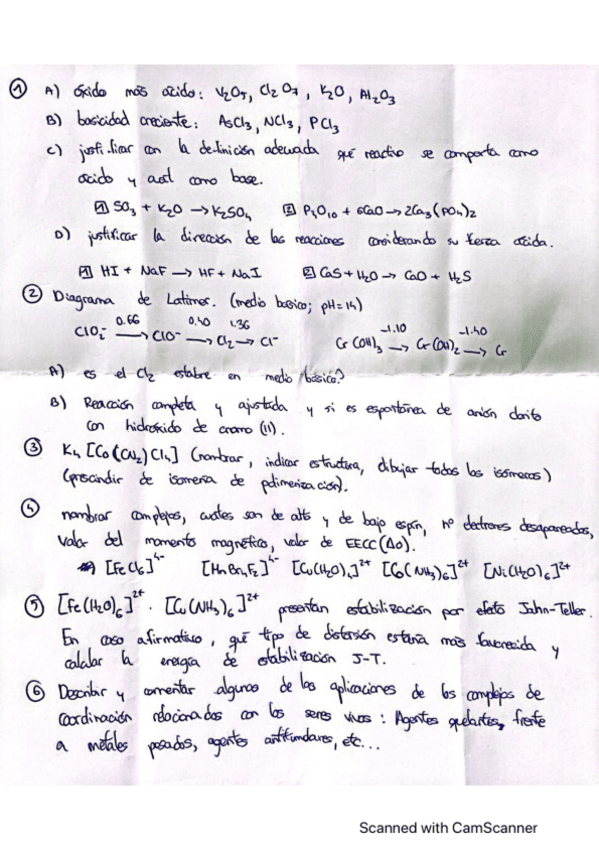 ① A) óxido más ácido: V₂O₅, Cl₂O₇, K₂O, Al₂O₃
B) basicidad creciente: AsCl₃, NCl₃, PCl₃
C) justificar con la definición adecuada qué reactivo se comporta como
ácido y cual como base.
1 SO₃ + K₂O → K₂SO₄ 2 P₄O₁₀ + 6CaO → 2Ca₃(PO₄)₂
D) justificar la dirección de las reacciones considerando su fuerza ácida.
1 HI + NaF → HF + NaI 2 CaS + H₂O → CaO + H₂S
② Diagrama de Latimer. (medio basico; pH=14)
0.66 0.40 1.36 -1.10 -1.40
ClO₂⁻ → ClO⁻ → Cl₂ → Cl⁻ Cr(OH)₃ → Cr(OH)₂ → Cr
A) es el Cl₂ estable en medio básico?
B) Reacción completa y ajustada y si es espontánea de anión clorito
con hidróxido de cromo (II).
③ K₄[Co(CN₂)Cl₄] (nombrar, indicar estructura, dibujar todos los isómeros)
(prescindir de isomería de polimerización).
④ nombrar complejos, cuales son de alto y de bajo espín, nº electrones desapareados,
valor del momento magnético, valor de EECC(Δo).
[FeCl₆]⁴⁻ [MnBr₄F₂]⁴⁻ [Cu(H₂O)₆]²⁺ [Co(NH₃)₆]²⁺ [Ni(H₂O)₆]²⁺
⑤ [Fe(H₂O)₆]²⁺. [Cu(NH₃)₆]²⁺ presentan estabilización por efecto Jahn-Teller.
En caso afirmativo, qué tipo de distorsión estaría más favorecida y
calcular la energía de estabilización J-T.
⑥ Describir y comentar algunas de las aplicaciones de los complejos de
coordinación relacionados con los seres vivos: Agentes quelantes, frente
a metales pesados, agentes antitumorales, etc...
Scanned with CamScanner